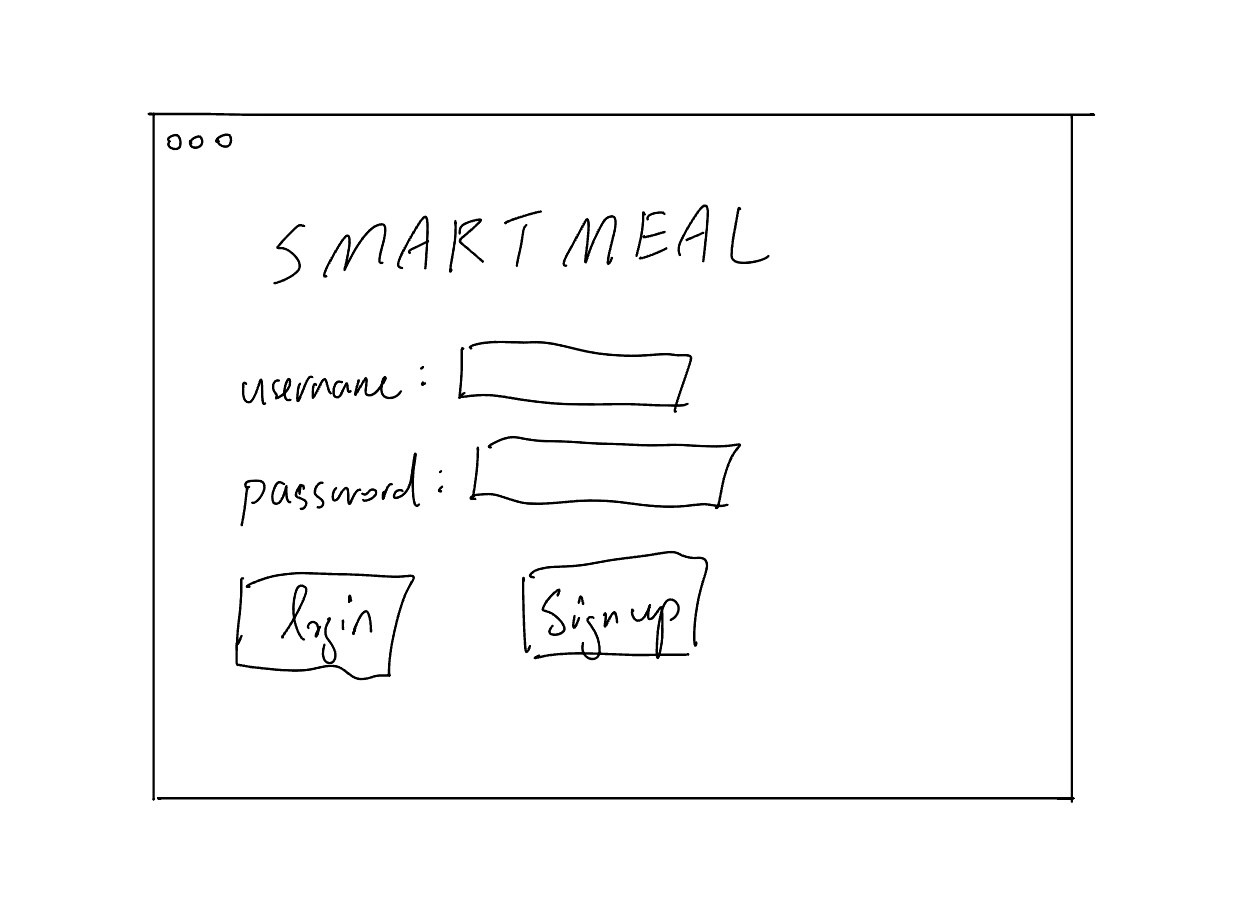 SMART MEAL
username:
password:
login
Sign up